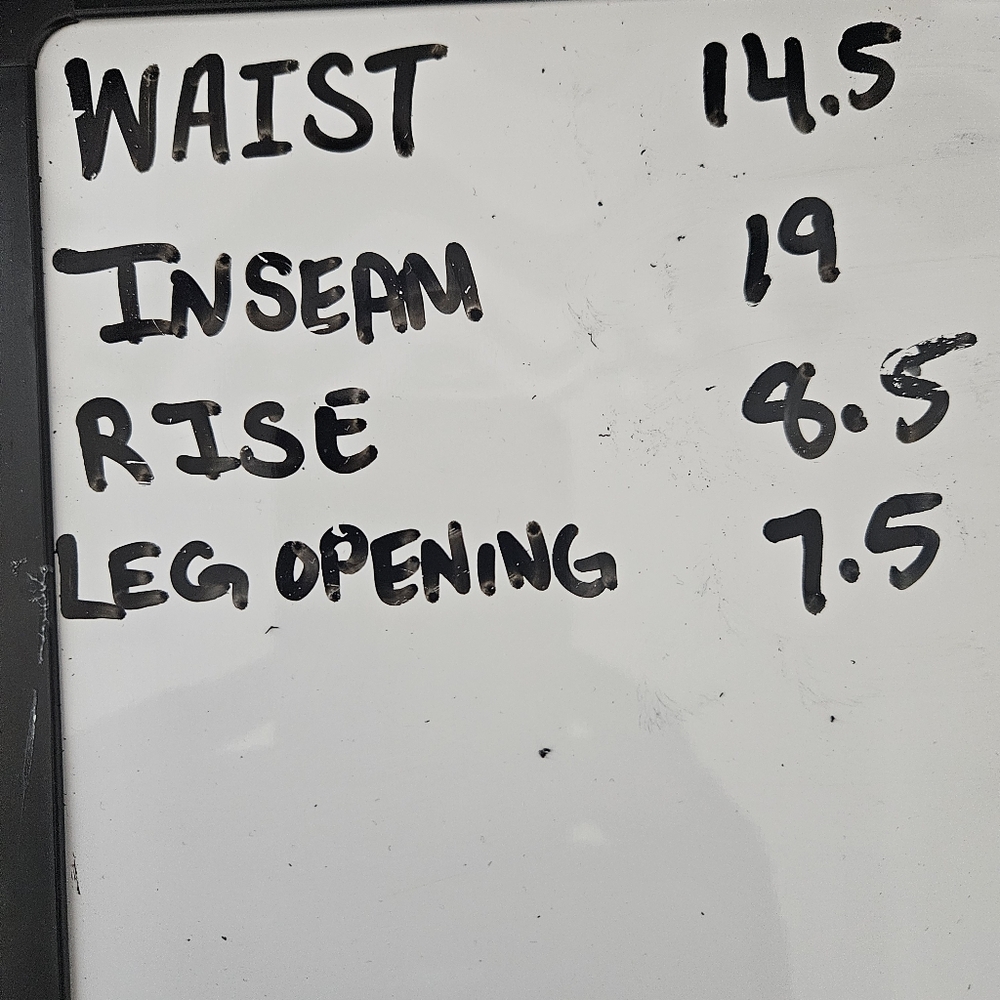 WAIST 14.5
INSEAM 19
RISE 8.5
LEG OPENING 7.5